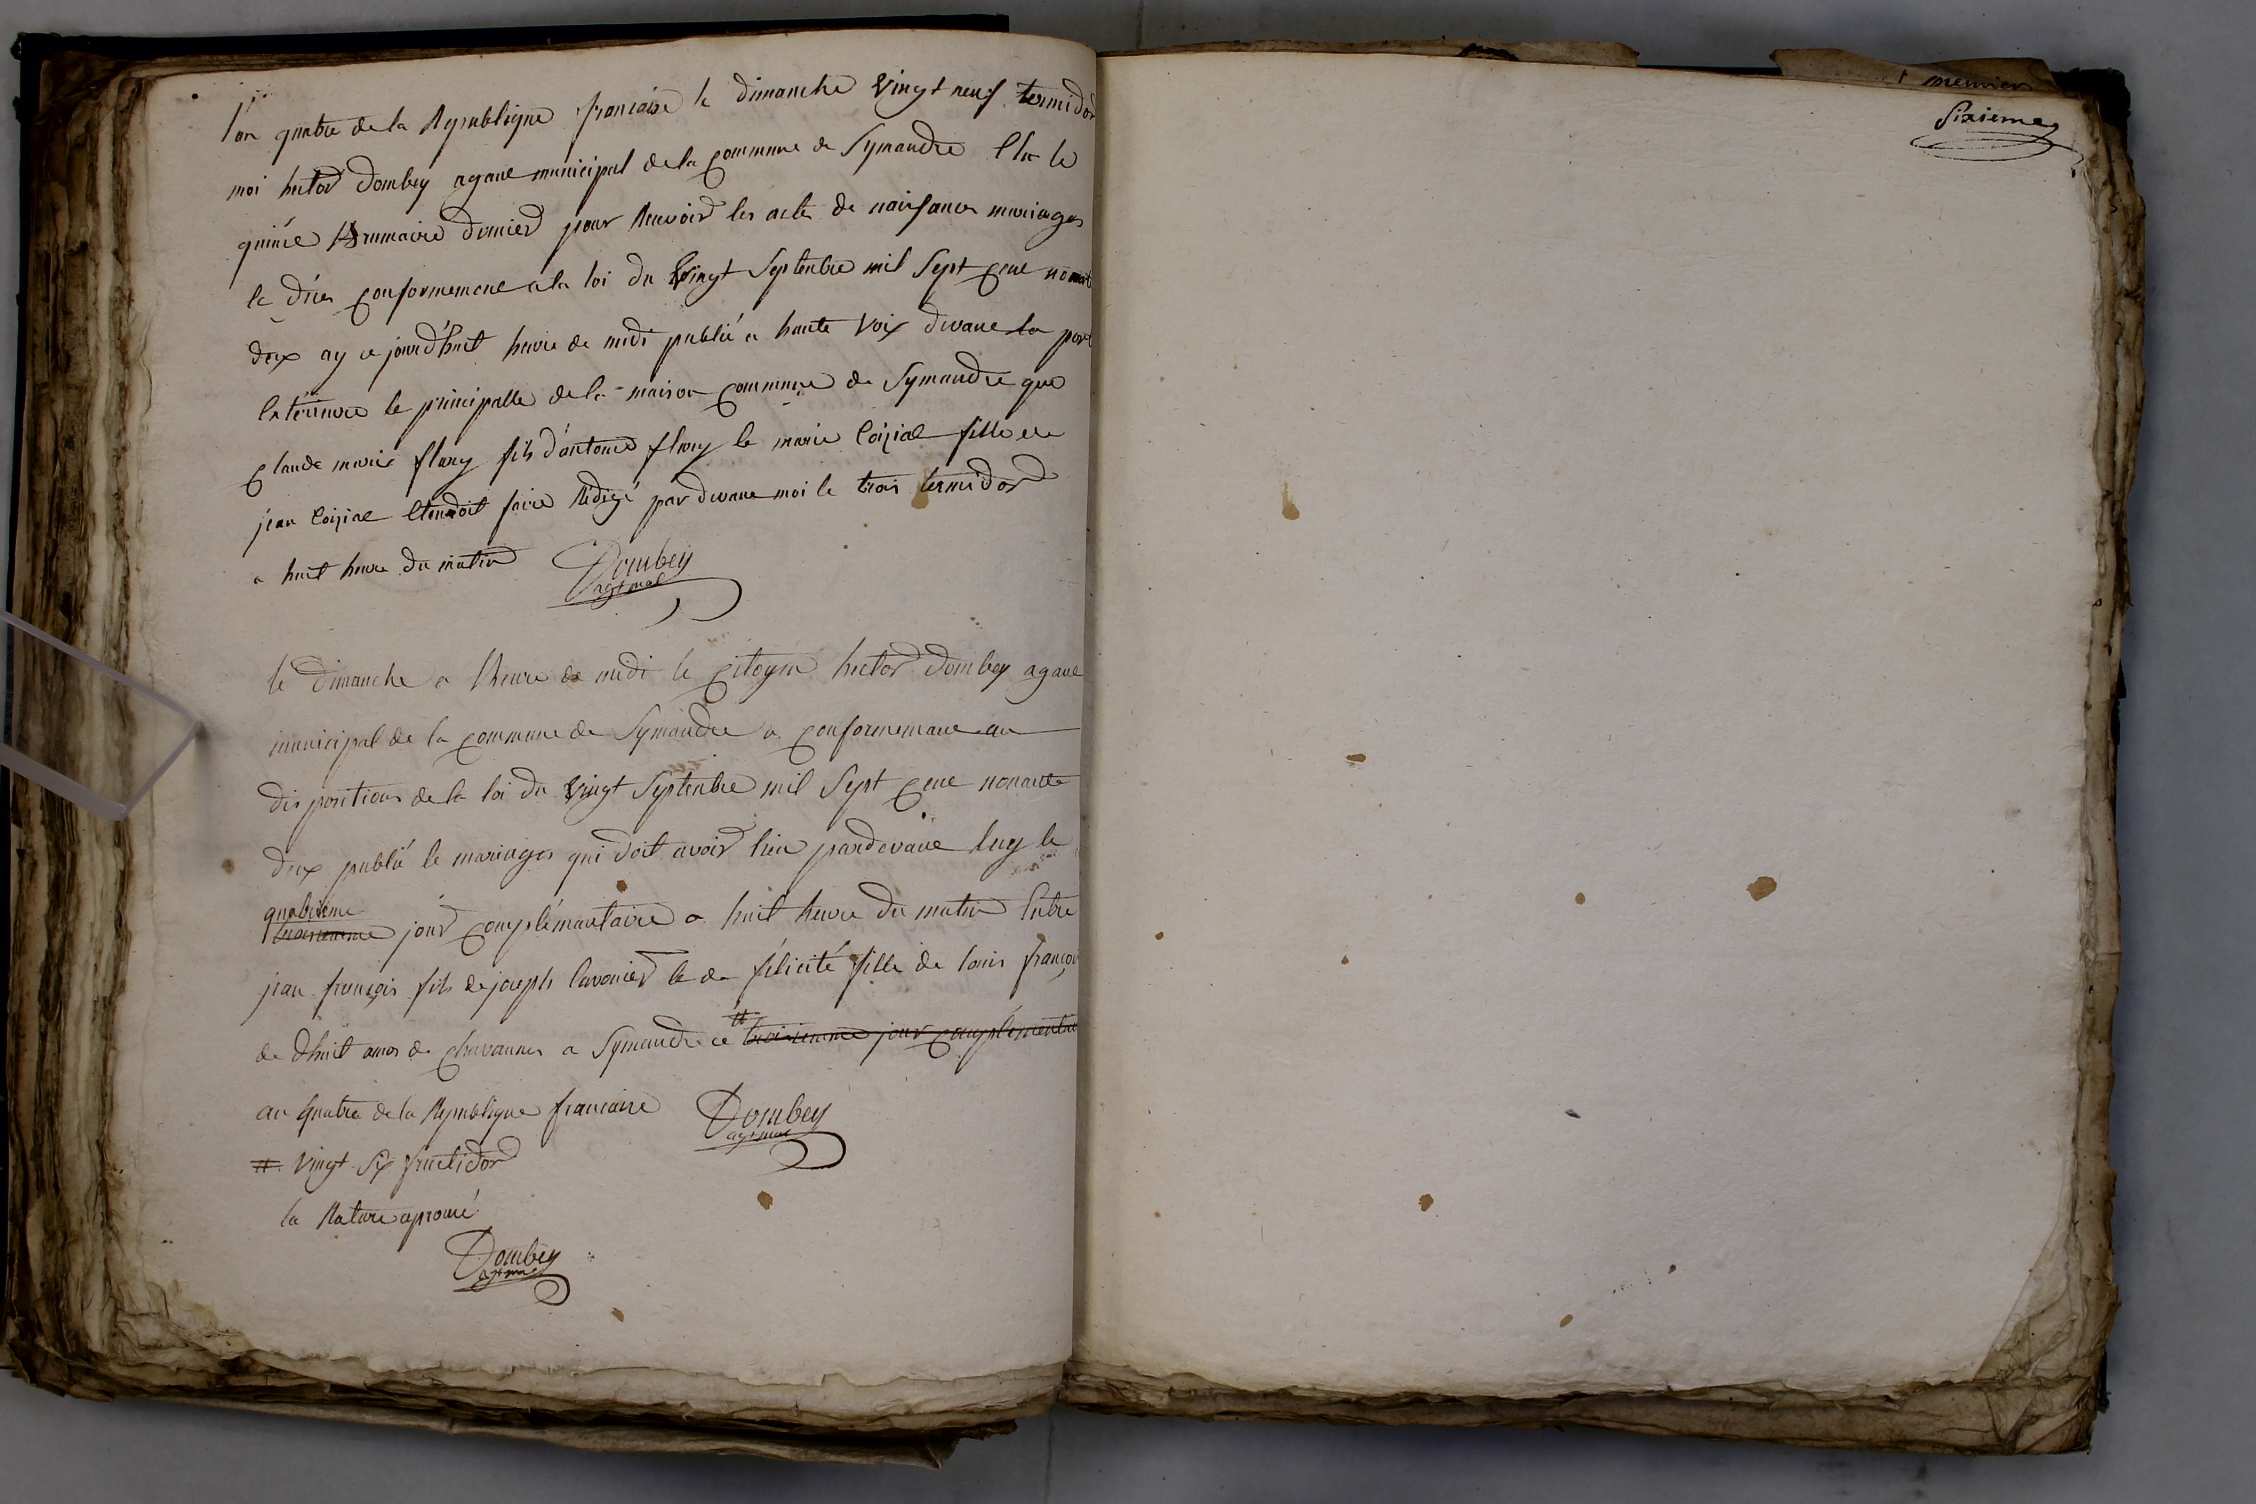 l'an quatre de la Republique francaise le dimanche vingt neuf termidor
moi hector Dombey agane municipal de la commune de Symandre Elu le
quinze Brumaire dernier pour Recevoir les actes de naissances mariages
le déces conformemene a la loi du vingt Septenbre mil Sept cene nonante
deux ay ce jourd'huit heure de midi publié a haute voix devane la porte
Extérieure le principalle de la maison commune de Symandre que
Claude marie flury fils d'antoine flury le marie Coiziae fille de
jean Coiziae Etendoit faire Rédigé par devane moi le trois termidor
a huit heure du matin Dombey
agt mal
le dimanche a l'heure de midi le Citoyen hector Dombey agane
municipal de la commune de Symandre a conformemane au
dispositions de la loi du vingt Septenbre mil Sept cene nonante
deux publié le mariages qui doit avoir lieu pardevane luy le
quatrieme
troisiemme jour complémantaire a huit heure du matin Entre
jean françois fils de joseph lavonier le de félicité fille de louis françois
de dhuit amos de Chavannes a Symandre ce # troisiemme jour complémentai
an quatre de la Republique francaise Dombey
agt mal
# vingt Six fructidor
la Rature aprouvé
Dombey
agt mal
mennier
Sixieme